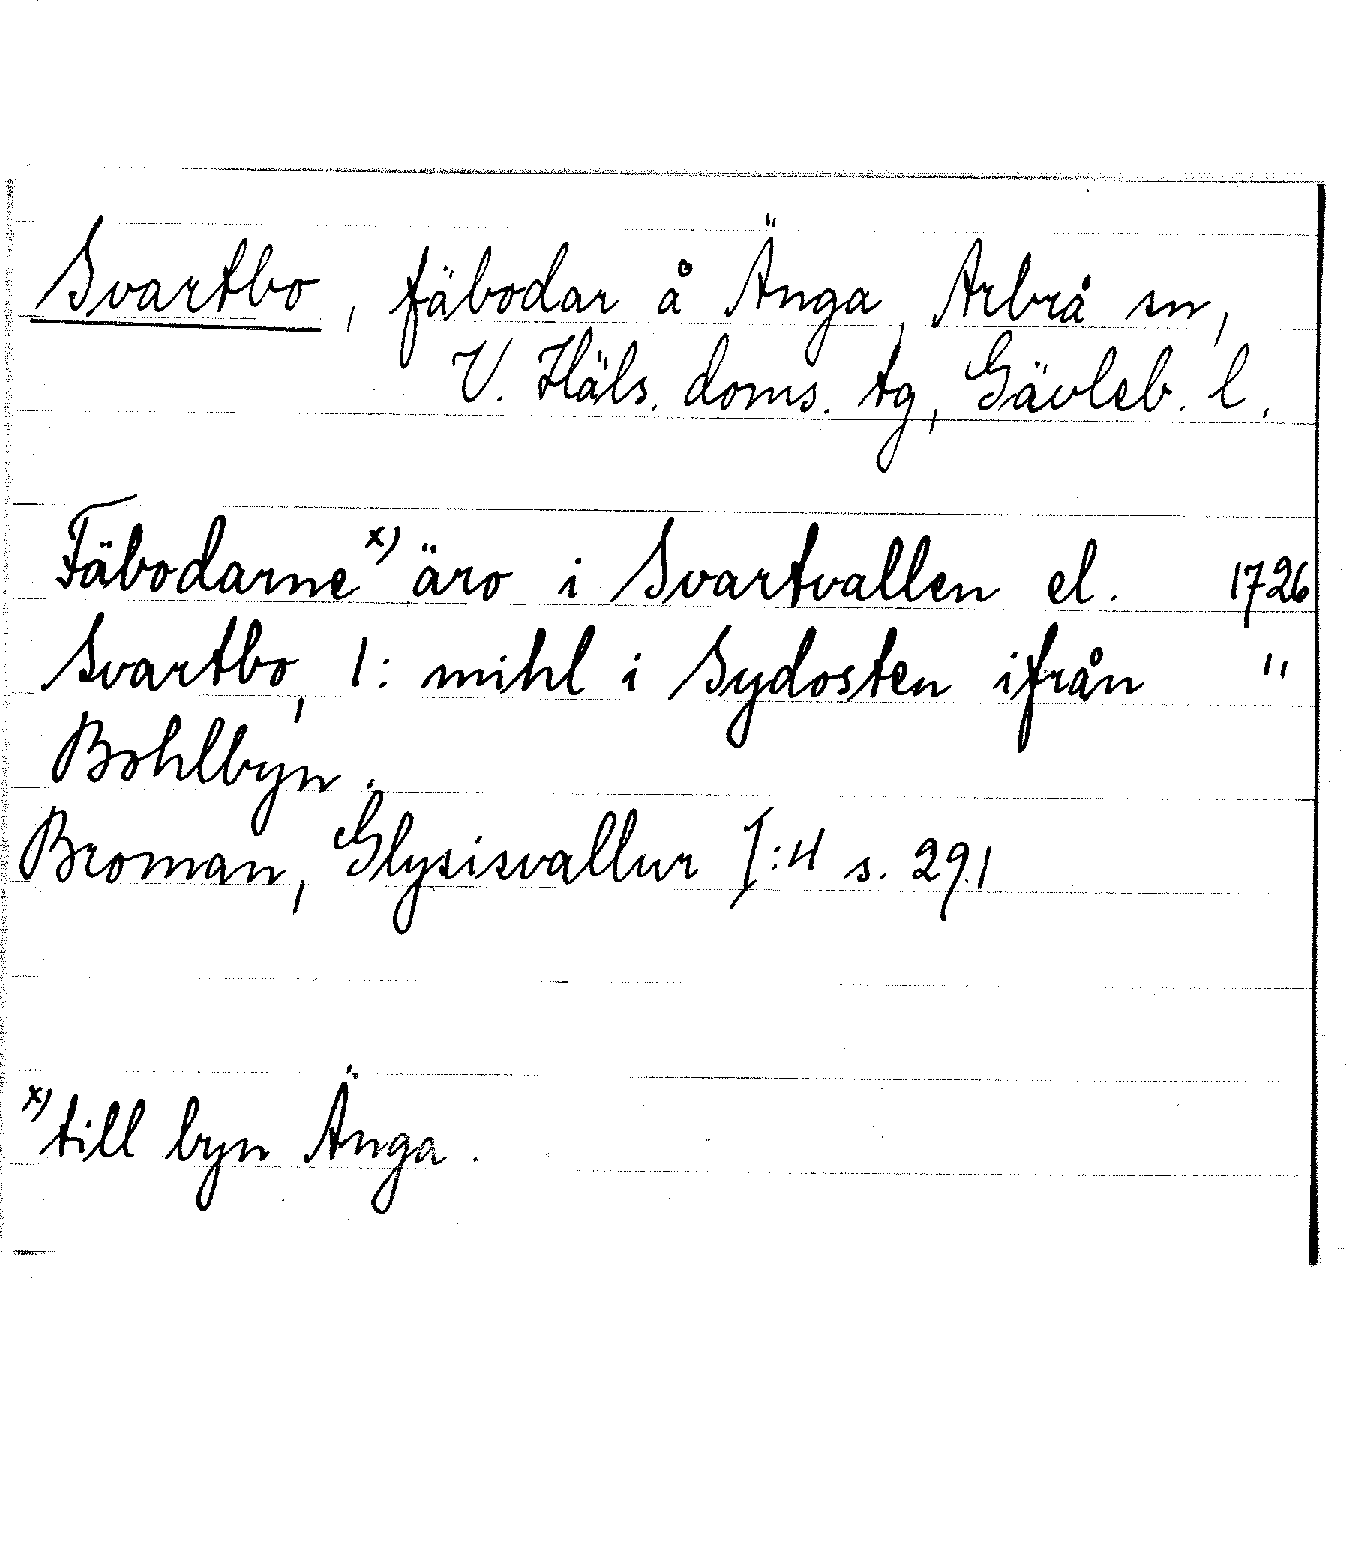 Svartbo, fäbodar å Änga, Arbrå sn,
V. Häls. doms. tg, Gävleb. l.
Fäbodarne x) äro i Svartvallen el. 1726
Svartbo, 1: mihl i Sydosten ifrån "
Bohlbyn.
Broman, Glysisvallur I:4 s. 291
x) till byn Änga.